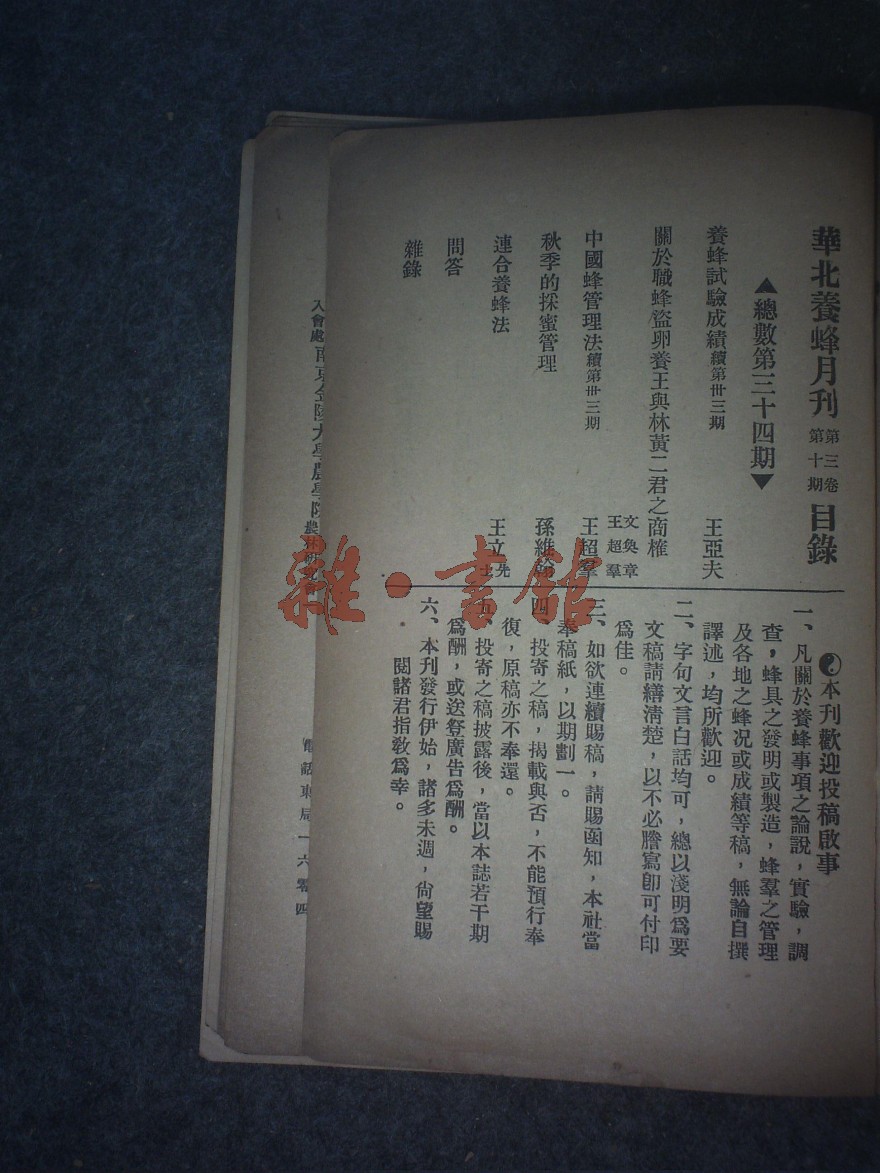 華北養蜂月刊 第三卷 第十期 目錄
▲總數第三十四期▼
養蜂試驗成績 續第卅三期 王亞夫
關於職蜂盜卵養王與林黃二君之商榷 文奐章 王超羣
中國蜂管理法 續第卅三期 王超羣
秋季的採蜜管理 孫維
連合養蜂法 王立 先
問答
雜錄
本刊歡迎投稿啟事
一、凡關於養蜂事項之論說，實驗，調
查，蜂具之發明或製造，蜂羣之管理
及各地之蜂况或成績等稿，無論自撰
譯述，均所歡迎。
二、字句文言白話均可，總以淺明爲要
文稿請繕清楚，以不必謄寫卽可付印
爲佳。
三、如欲連續賜稿，請賜函知，本社當
奉稿紙，以期劃一。
四、投寄之稿，揭載與否，不能預行奉
復，原稿亦不奉還。
五、投寄之稿披露後，當以本誌若干期
爲酬，或送登廣告爲酬。
六、本刊發行伊始，諸多未週，尙望賜
閱諸君指敎爲幸。
入會處 南京金陵大學農學院
電話東局一六零四
雜·書館